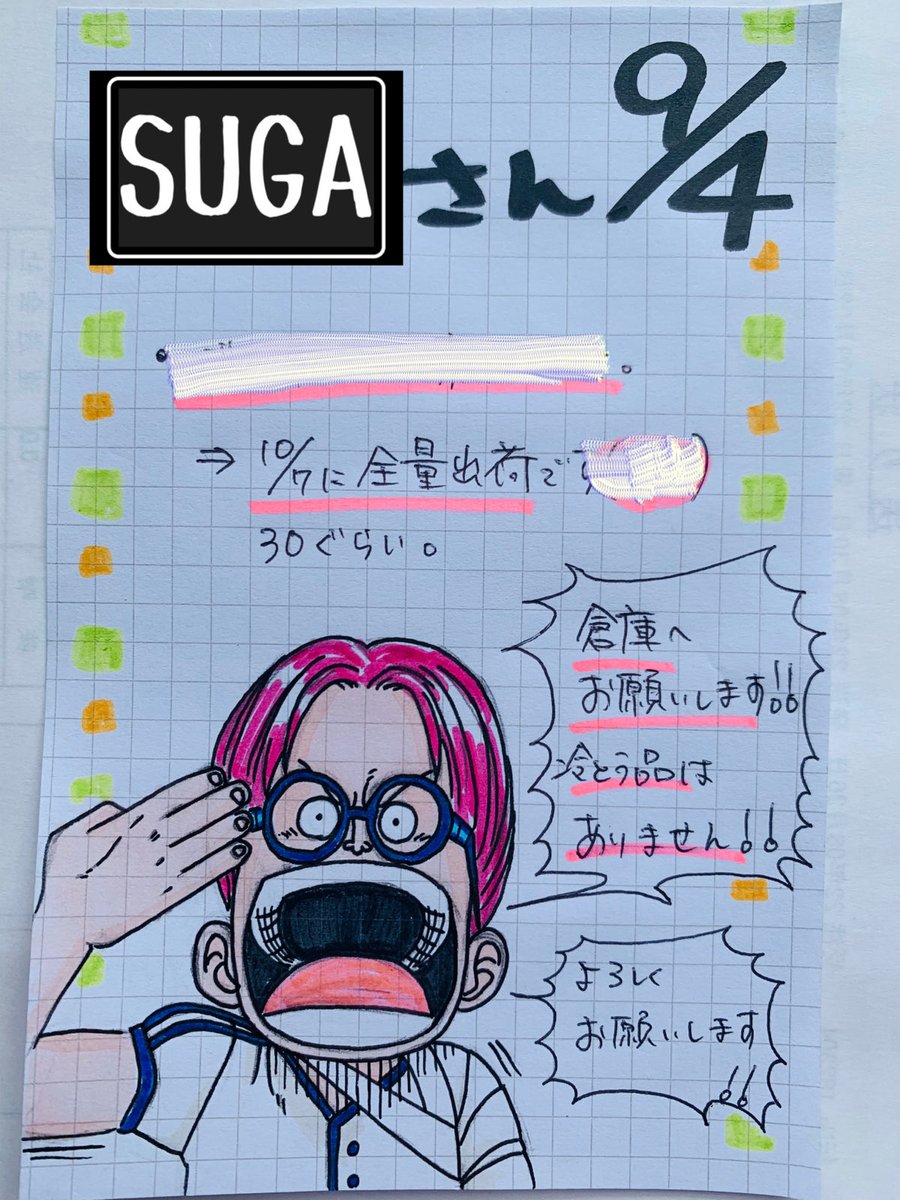 SUGAさん 9/4
⇒ 10/7に全量出荷です
30ぐらい。
倉庫へ
お願いします!!
冷とう品は
ありません!!
よろしく
お願いします
!!